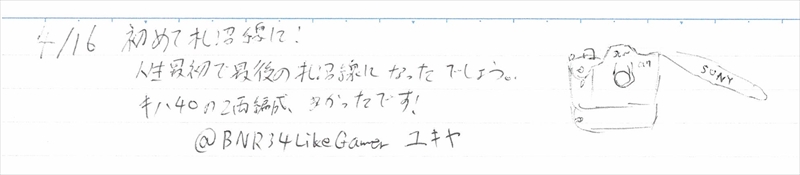 4/16 初めて札沼線に!
人生最初で最後の札沼線になったでしょう。
キハ40の2両編成、よかったです!
@BNR34LikeGamer ユキヤ
SONY